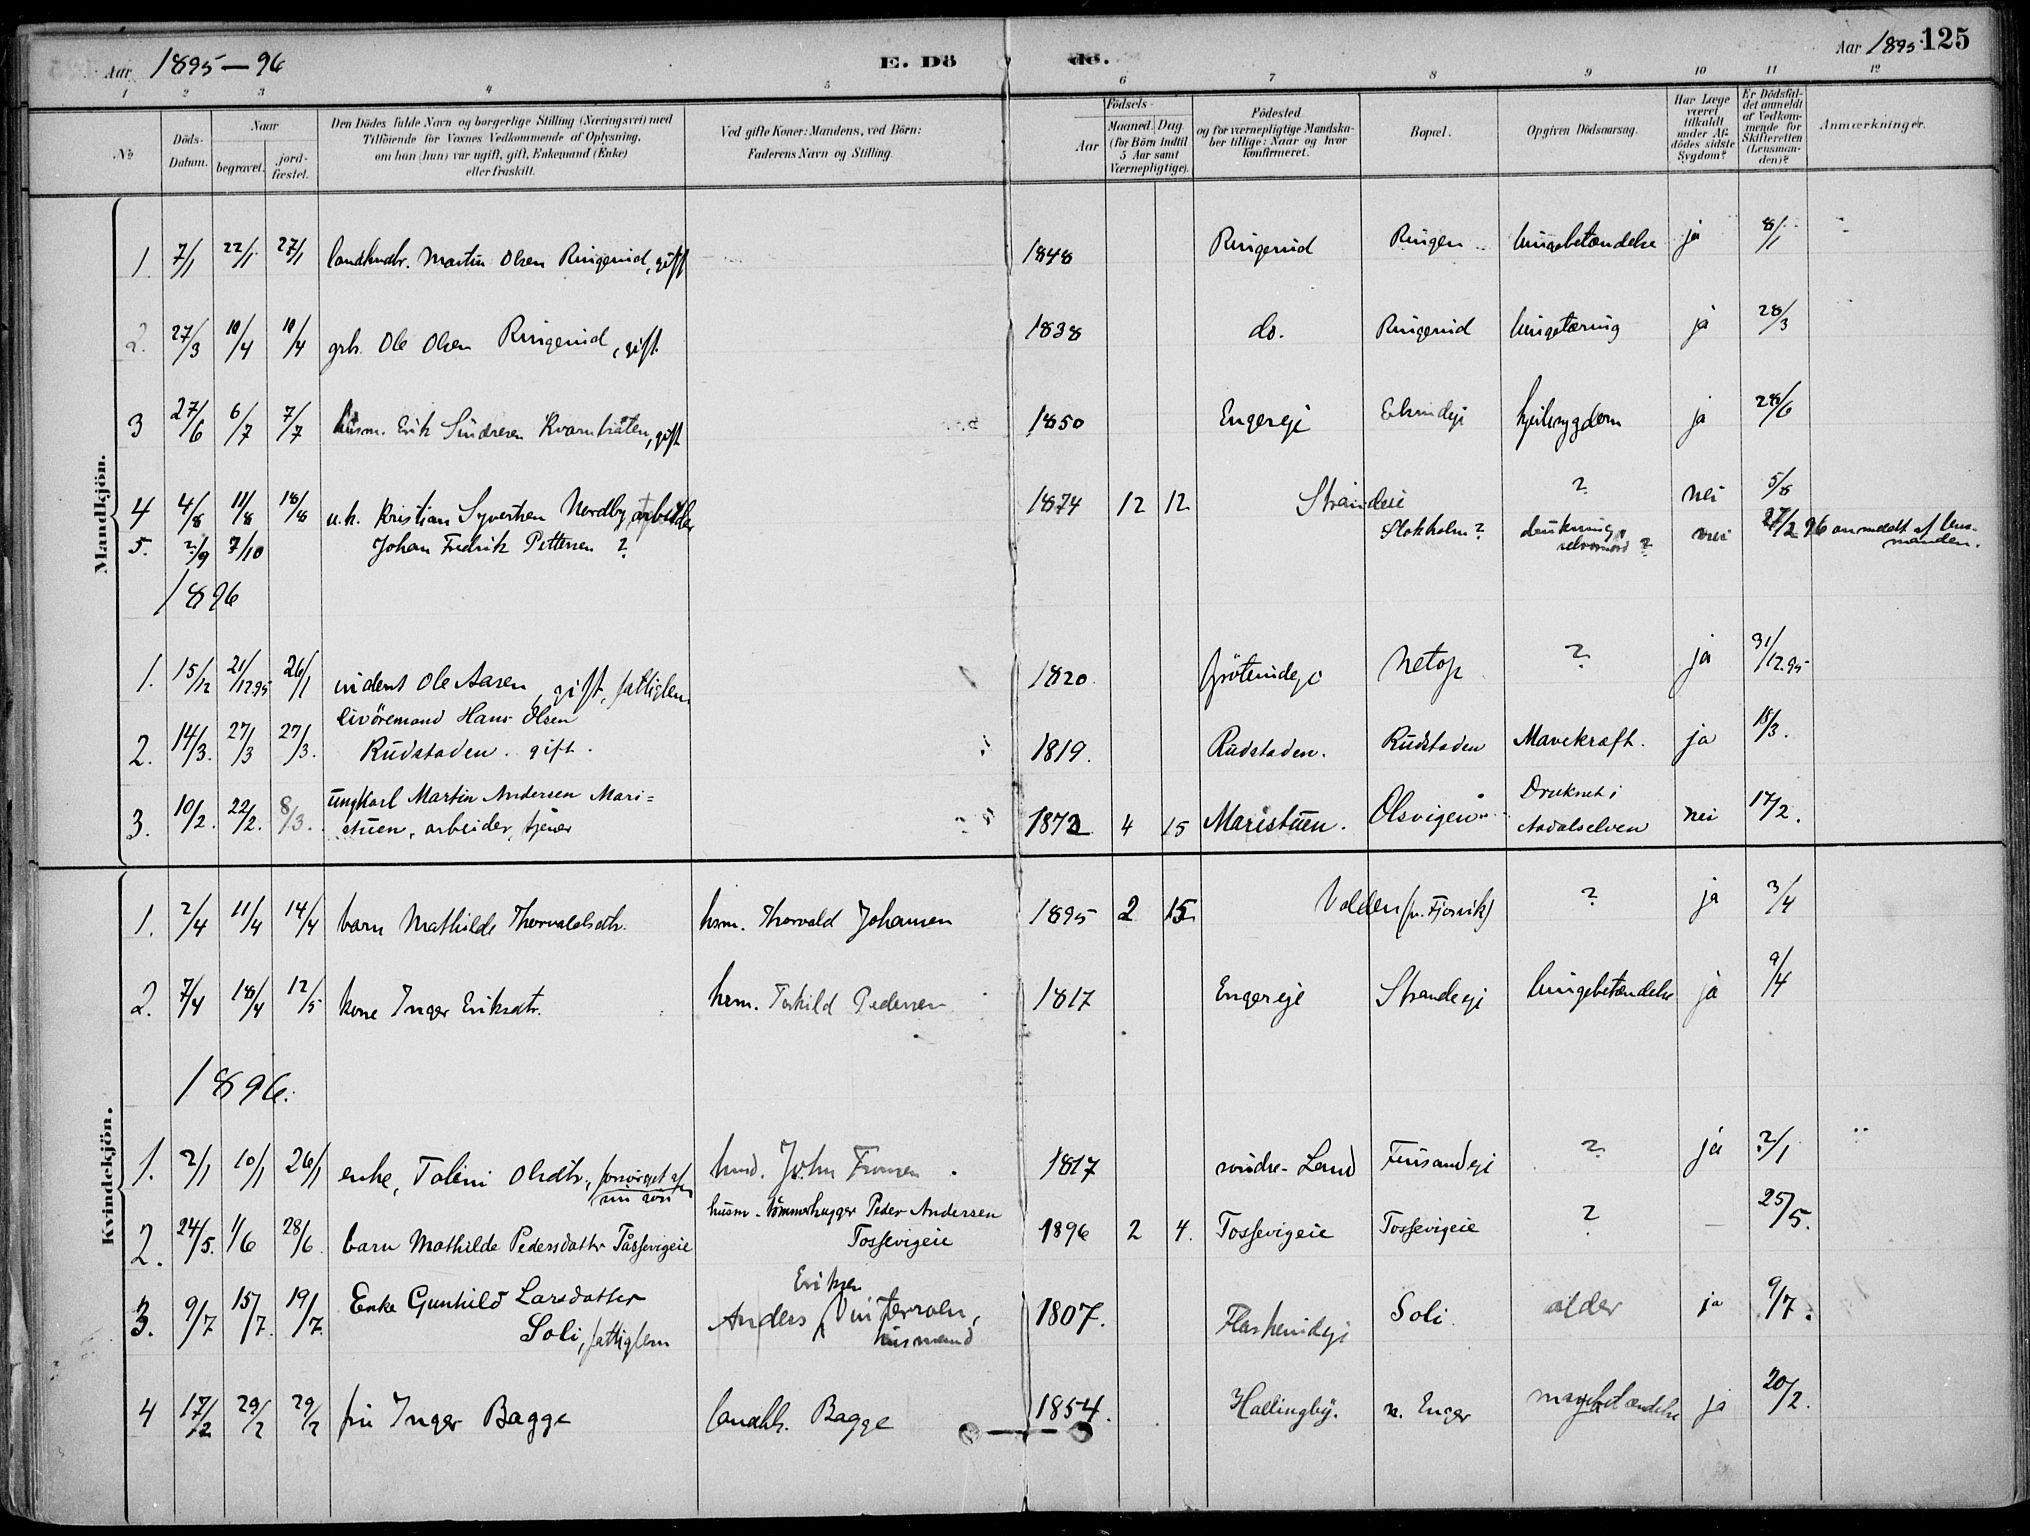 Aar 1895-96 E. Dö de. Aar 1895 125
1 2 3 4 5 6 7 8 9 10 11 12
№ Döds-Datum. Naar begravet. jord-fæstet. Den Dödes fulde Navn og borgerlige Stilling (Næringsvei) med Tilföiende for Voxnes Vedkommende af Oplysning, om han (hun) var ugift, gift, Enkemand (Enke) eller fraskilt. Ved gifte Koner: Mandens, ved Börn: Faderens Navn og Stilling. Födsels- Aar Maaned. Dag. (for Börn indtil 5 Aar samt Værnepligtige). Födested og for værnepligtige Mandskaber tillige: Naar og hvor konfirmeret. Bopæl. Opgiven Dödsaarsag. Har Læge været tilkaldt under Afdödes sidste Sygdom? Er Dödsfaldet anmeldt af Vedkommende for Skifteretten (Lensmanden)? Anmærkninger.
Mandkjön.
1. 7/1 22/1 27/1 landhndr. Martin Olsen Ringerud, gift 1848 Ringerud Ringen lungebetændelse ja 8/1
2. 27/3 10/4 10/4 grb. Ole Olsen Ringerud, gift. 1838 do. Ringerud lungetæring ja 28/3
3 27/6 6/7 7/7 husm. Erik Sindresen Kvarnbråten, gift 1850 Engereje hjertesygdom ja 28/6
4 4/8 11/8 18/8 u.k. Kristian Syvertsen Nordby, arbeider 1874 12 12 Strandeie ? nei 5/8
5. ?/9 7/10 Johan Fredrik Pettersen ? Stokholm ? drukning, selvmord ? nei 27/2 96 anmeldt af lensmanden.
1896
1. 15/12 21/12 95 26/1 inderst Ole Aasen, gift, fattiglem 1820. Netop ? ja 31/12.95
2. 14/3. 27/3 27/3. Livöremand Hans Olsen
Rudstaden. gift. 1819. Rudstaden. Rudstaden Mavekræft. ja 15/3.
3. 10/2. 22/2. 8/3. Ungkarl Martin Andersen Mari=
stuen, arbeider, tjener 1872 4 15 Maristuen. Olsvigen Druknet i Aadalselven nei 17/2.
Kvindekjön.
1. 2/4 11/4 14/4 barn Mathilde Thorvaldsdtr. husm. Thorvald Johansen 1895 2 15 Volden (n. Fjorvik) ? ja 3/4
2. 7/4 18/4 12/5 kone Inger Eriksdtr. husm. Terkild Pedersen 1817 Engereje Strandeje lungebetændelse ja 9/4
1896.
1. 2/1 10/1 26/1 enke, Toline Olsdtr., forsørget af sin søn husm. John Fransen 1817 søndre Land ? ja 2/1
2. 24/5. 1/6 28/6. barn Mathilde Pedersdatter Tåssevigeie husm. tømmerhugger Peder Andersen Tossevigeie 1896 2 4. Tossevigeie Tossevigeie ? — 25/5.
3. 9/7 15/7. 19/7. Enke Gunhild Larsdatter
Soli, fattiglem Anders Eriksen husmand 1807. Soli. alder ja 9/7.
4 17/2 29/2 29/2 fru Inger Bagge landh. Bagge 1854. Hallingby. n. Enger mavebetændelse ja 20/2.